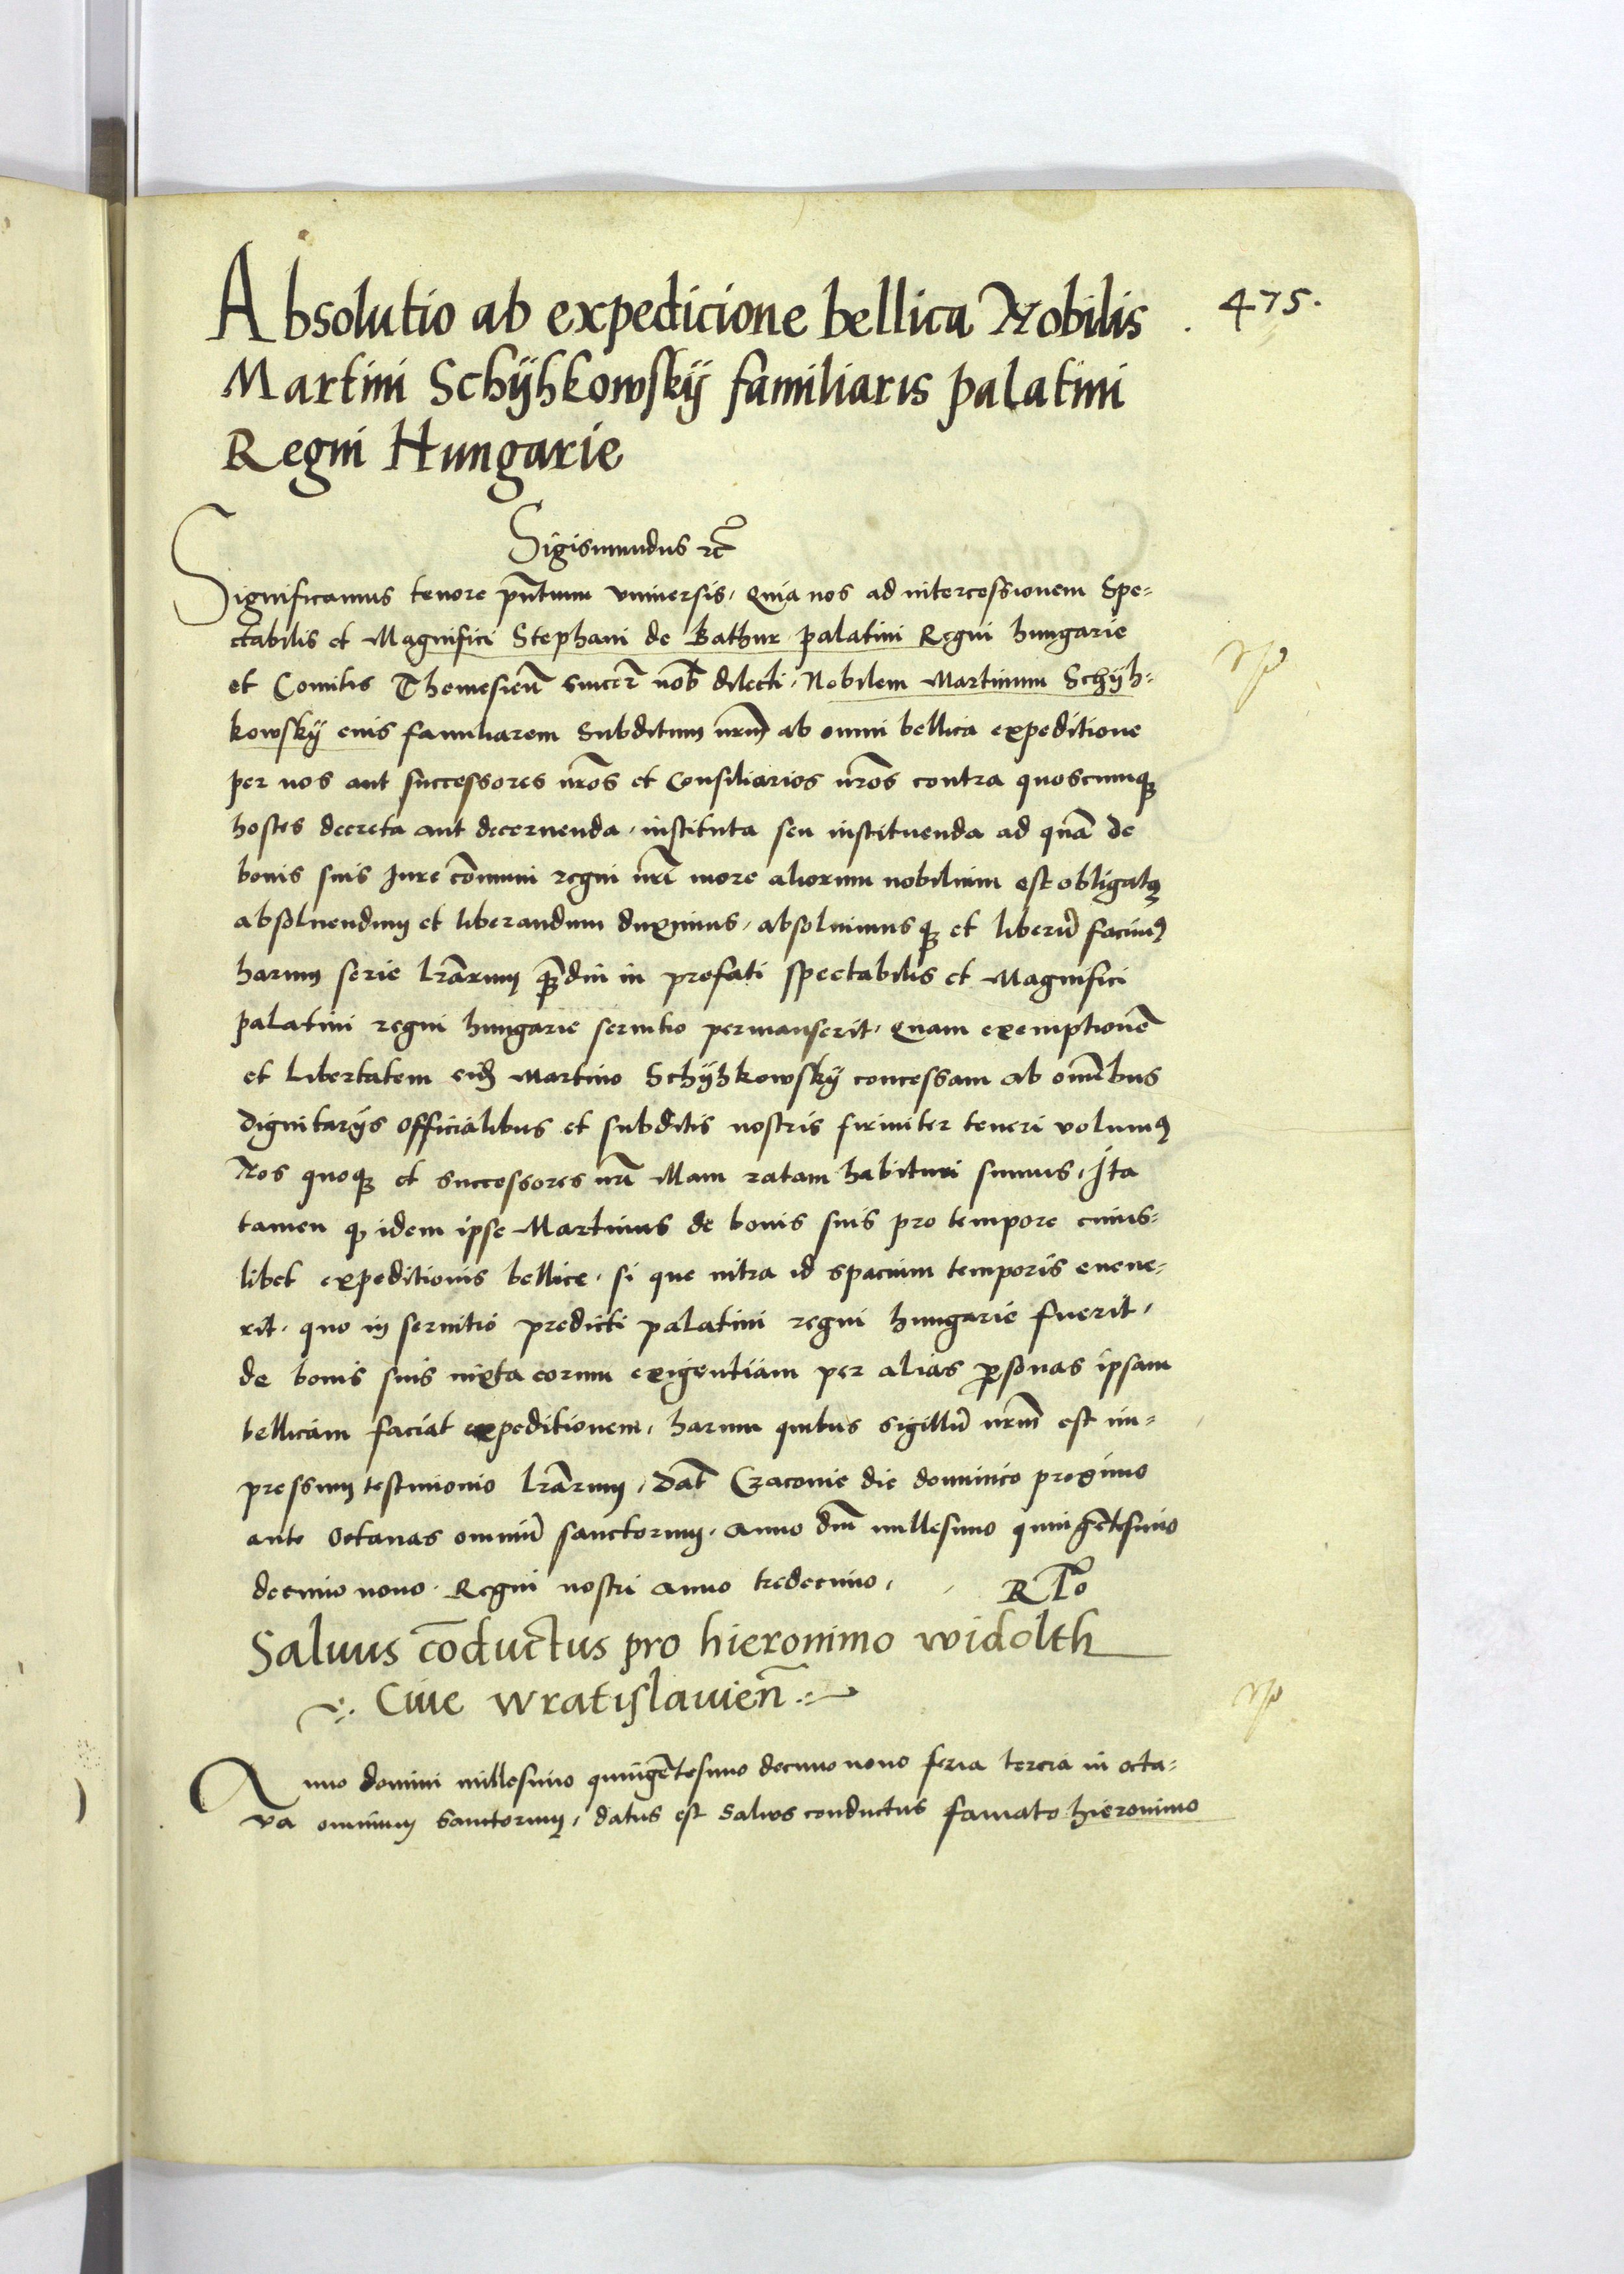 Absolutio ab expedicione bellica Nobilis
475.
Martini Schÿhkowskÿ familiaris palatini
Regni Hungarie
Sigismundus ꝛc̃
Significamus tenore pñtium vniuersis, Quia nos ad intercessionem Spe-
ctabilis et Magnifici Stephani de Bathur palatini Regni hungarie
et Comitis Themesieñ sincer̃ nob̃ dilecti, Nobilem Martinum Schÿh-
kowskÿ eius familiarem Subditum nr̃m ab omni bellica expeditione
per nos aut successores nr̃os et Consiliarios nr̃os contra quoscunqꝫ
hostes decreta aut decernenda, instituta seu instituenda ad quã de
bonis suis Jure cõmuni regni nr̃i more aliorum nobilium est obligatꝰ
absoluendum et liberandum duximus, absoluimusqꝫ et liberũ facimꝰ
harum serie lr̃arum qꝫdiu in prefati spectabilis et Magnifici
palatini regni hungarie seruitio permanserit, Quam exemptionẽ
et Libertatem eidẽ Martino Schÿhkowskÿ concessam ab omĩbus
dignitarijs officialibus et subditis nostris firmiter teneri volumꝰ
Nos quoqꝫ et successores nr̃i illam ratam habituri sumus, Ita
tamen qꝫ idem ipse Martinus de bonis suis pro tempore cuius-
libet expeditionis bellice, si que intra id spacium temporis euene-
rit, quo in seruitio predicti palatini regni hungarie fuerit,
de bonis suis iuxta eorum exigentiam per alias ꝑsonas ipsam
bellicam faciat expeditionem, harum quibus sigillũ nr̃m est im-
pressum testimonio lr̃arum, Dat̃ Cracouie die dominico proximo
ante Octauas omniũ sanctorum, anno dñi millesimo quingẽtesimo
decimo nono. Regni nostri anno tredecimo, R Pͦ
Saluus cõductus pro hieronimo widolth
Ciue wratislauieñ
Anno domini millesimo quingẽtesimo decimo nono feria tercia in octa-
va omnium Sanctorum, datus est Saluos conductus famato hieronimo